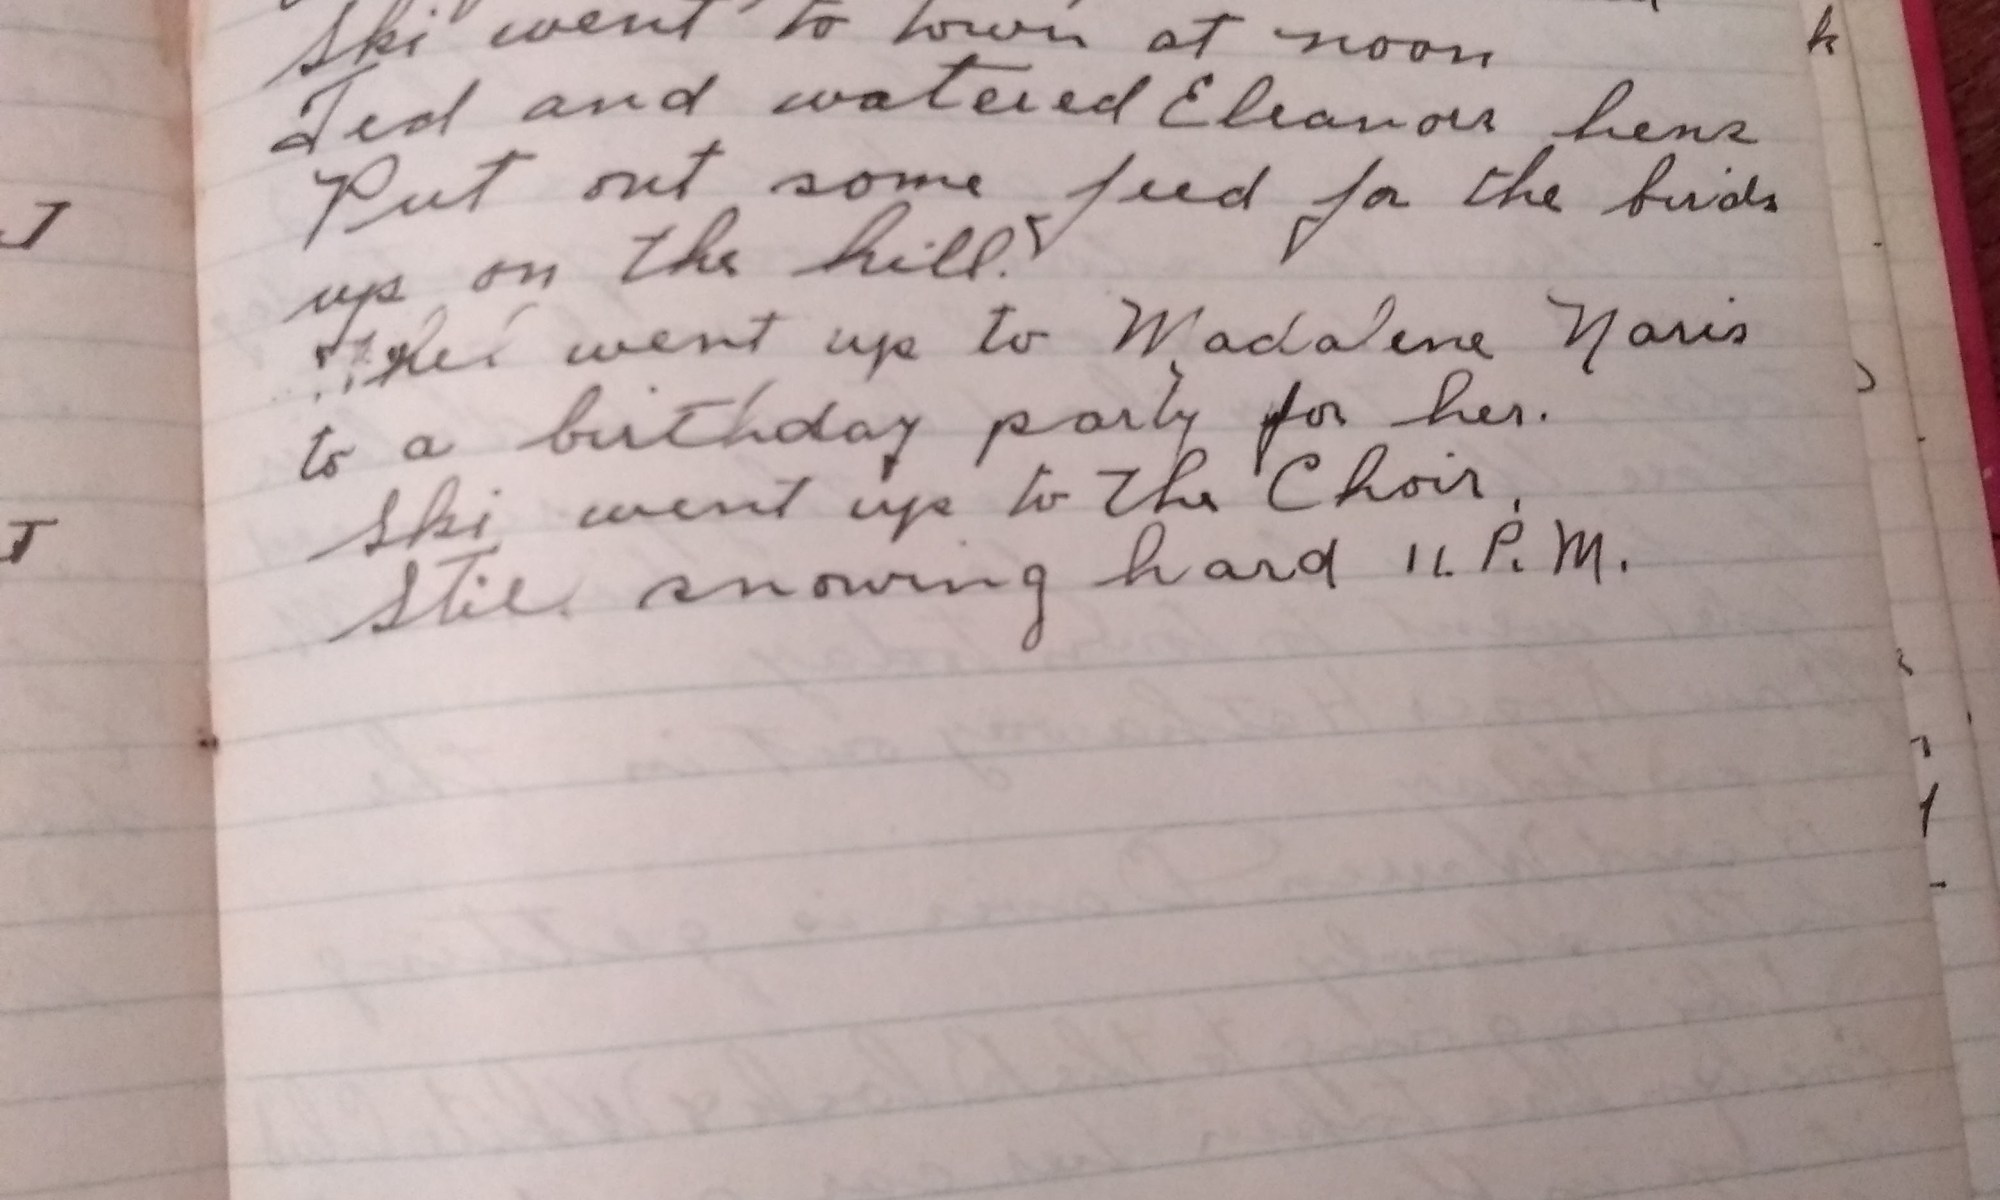 Ski went to town at noon
Fed and watered Eleanors hens
Put out some feed for the birds
up on the hill.
went up to Madalene Naris
to a birthday party for her.
Ski went up to the Choir.
Still snowing hard 11. P.M.